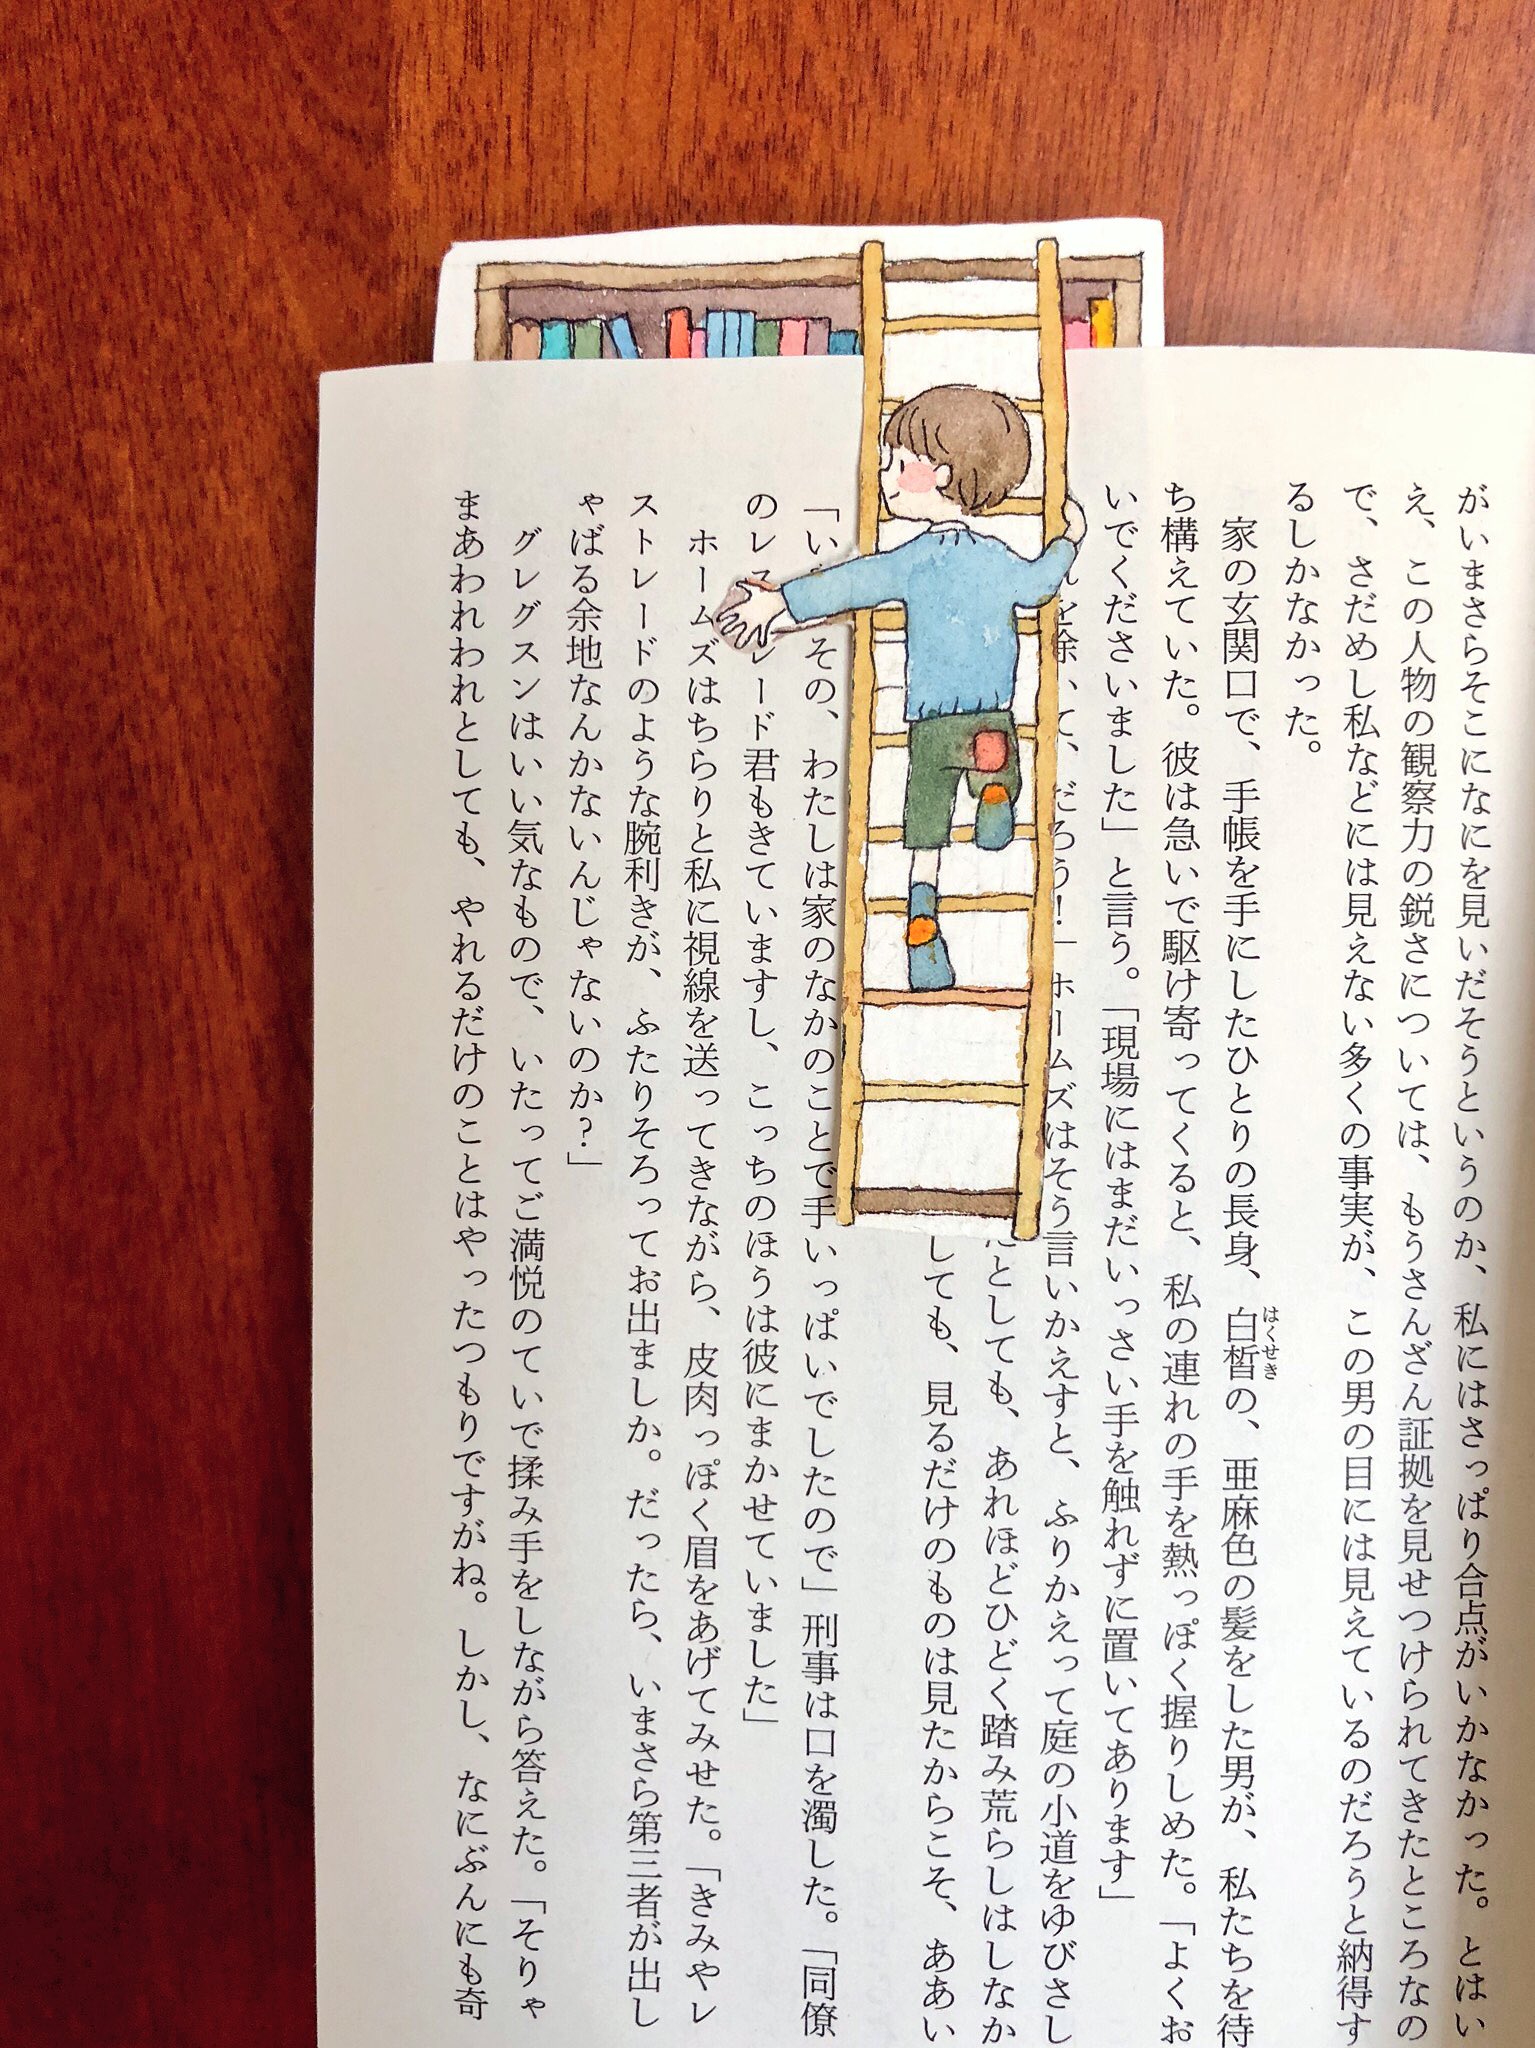 がいまさらそこになにを見いだそうというのか、私にはさっぱり合点がいかなかった。とはい
え、この人物の観察力の鋭さについては、もうさんざん証拠を見せつけられてきたところなの
で、さだめし私などには見えない多くの事実が、この男の目には見えているのだろうと納得す
るしかなかった。
家の玄関口で、手帳を手にしたひとりの長身、白皙の、亜麻色の髪をした男が、私たちを待
はくせき
ち構えていた。彼は急いで駆け寄ってくると、私の連れの手を熱っぽく握りしめた。「よくお
いでくださいました」と言う。「現場にはまだいっさい手を触れずに置いてあります」
を除いて、だろう！」ホームズはそう言いかえすと、ふりかえって庭の小道をゆびさし
としても、あれほどひどく踏み荒らしはしなか
しても、見るだけのものは見たからこそ、ああい
「い その、わたしは家のなかのことで手いっぱいでしたので」刑事は口を濁した。「同僚
のレストレード君もきていますし、こっちのほうは彼にまかせていました」
ホームズはちらりと私に視線を送ってきながら、皮肉っぽく眉をあげてみせた。「きみやレ
ストレードのような腕利きが、ふたりそろってお出ましか。だったら、いまさら第三者が出し
ゃばる余地なんかないんじゃないのか？」
グレグスンはいい気なもので、いたってご満悦のていで揉み手をしながら答えた。「そりゃ
まあわれわれとしても、やれるだけのことはやったつもりですがね。しかし、なにぶんにも奇